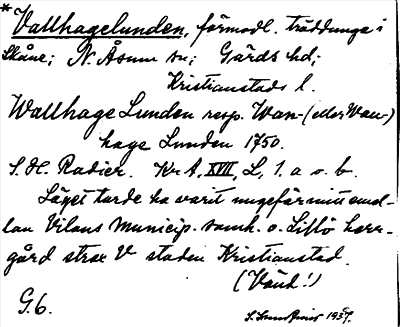 * Vallhagelunden, förmodl. träddunge i
Skåne; N. Åsum sn; Gärds hd;
Kristianstads l.
Wallhage Lunden resp. Wan- (eller Wau-)
hage Lunden 1750.
S. H. Radier. Kr A, XVIII, L, 1. a o. b.
Läget torde ha varit ungefär mitt emel-
lan Vilans municip. samh. o. Lillö herr-
gård strax V staden Kristianstad.
(Vänd!)
G. 6.